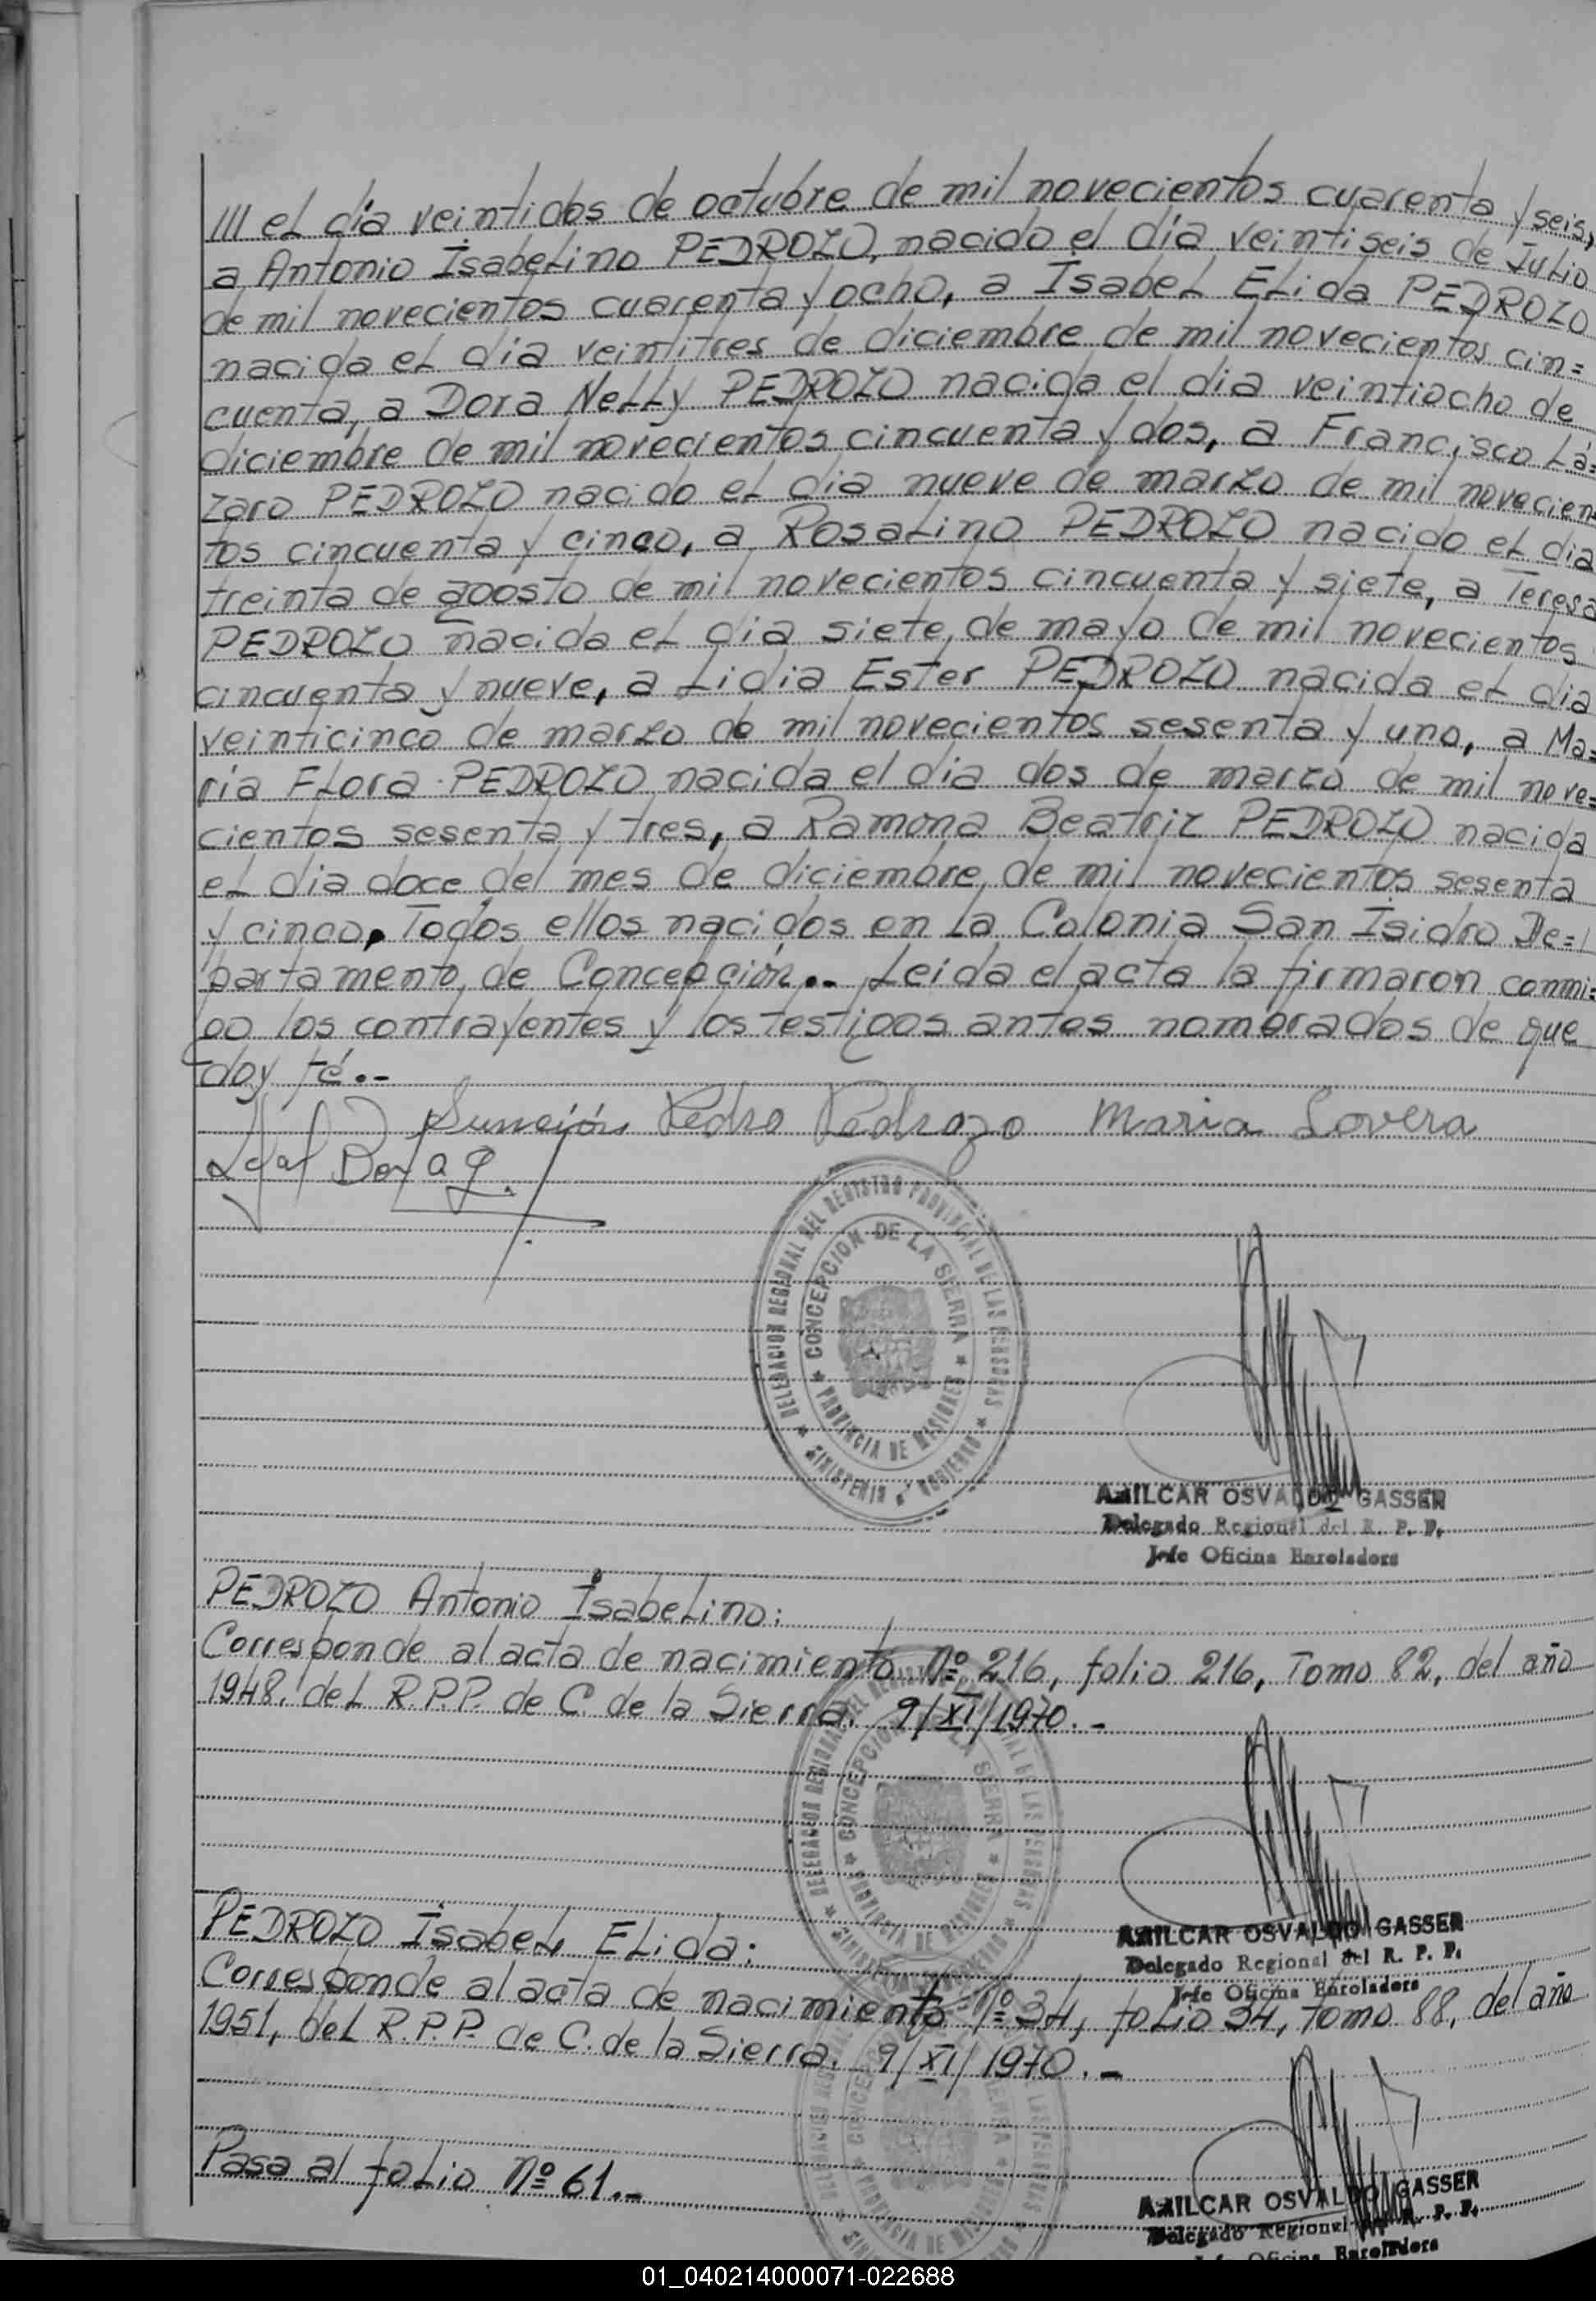 /// el día veintidos de octubre de mil novecientos cuarenta y seis,
a Antonio Isabelino PEDROZO, nacido el día veintiseis de Julio
de mil novecientos cuarenta y ocho, a Isabel Elida PEDROZO
nacida el día veintitres de diciembre de mil novecientos cin=
cuenta, a Dora Nelly PEDROZO nacida el dia veintiocho de
diciembre de mil novecientos cincuenta y dos, a Francisco Lá=
zaro PEDROZO nacido el dia nueve de marzo de mil novecien=
tos cincuenta y cinco, a Rosalino PEDROZO nacido el dia
treinta de agosto de mil novecientos cincuenta y siete, a Teresa
PEDROZO nacida el dia siete de mayo de mil novecientos
cincuenta y nueve, a Lidia Ester PEDROZO nacida el dia
veinticinco de marzo de mil novecientos sesenta y uno, a Ma=
ria Flora PEDROZO nacida el dia dos de marzo de mil nove=
cientos sesenta y tres, a Ramona Beatriz PEDROZO nacida
el dia doce del mes de diciembre de mil novecientos sesenta
y cinco. Todos ellos nacidos en la Colonia San Isidro De=
partamento de Concepción.- Leida el acta la firmaron conmi=
go los contrayentes y los testigos antes nombrados de que
doy fé.-
Pedro Pedrozo Maria Lovera
DELEGACION REGIONAL DEL REGISTRO PROVINCIAL DE LAS PERSONAS
CONCEPCION DE LA SIERRA
PROVINCIA DE MISIONES
MINISTERIO GOBIERNO
AMILCAR OSVALDO GASSER
Delegado Regional del R. P. P.
Jefe Oficina Enroladora
PEDROZO Antonio Isabelino:
Corresponde al acta de nacimiento Nº 216, folio 216, Tomo 82, del año
1948, del R.P.P. de C. de la Sierra. 9/XI/1970.-
AMILCAR OSVALDO GASSER
Delegado Regional del R. P. P.
Jefe Oficina Enroladora
PEDROZO Isabel Elida:
Corresponde al acta de nacimiento Nº 34, folio 34, Tomo 88, del año
1951, del R.P.P. de C. de la Sierra. 9/XI/1970.-
Pasa al folio Nº 61.-
AMILCAR OSVALDO GASSER
Delegado Regional del R. P. P.
Jefe Oficina Enroladora
01_040214000071-022688